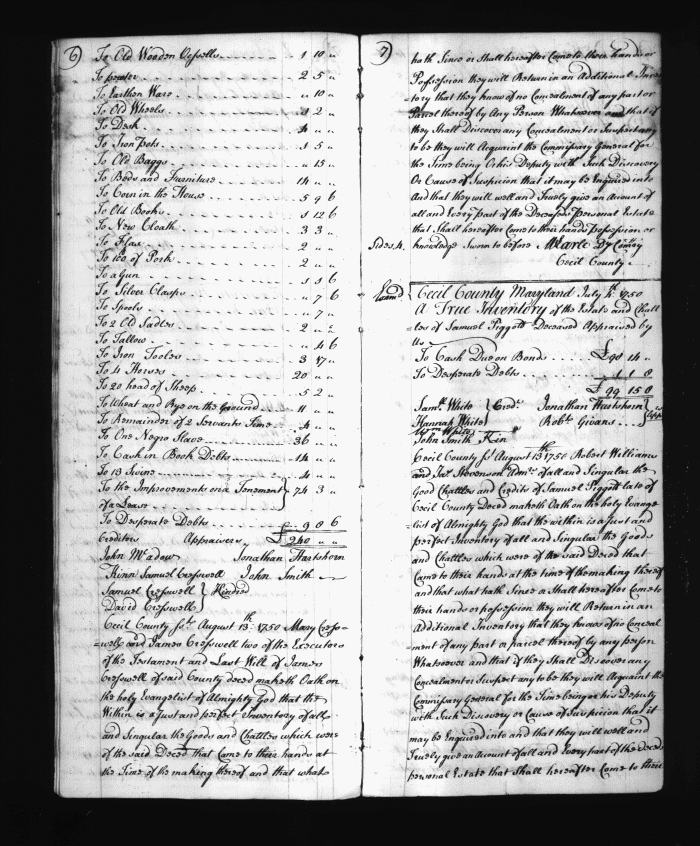 6
To Old Wooden Vessells 1 10 "
To pewter 2 5 "
To Earthen Ware " 10 "
To Old Wheels 1 2 "
To Desk 4 " "
To Iron Pots 1 5 "
To Old Baggs " 15 "
To Beds and Furniture 14 " "
To Corn in the House 5 9 6
To Old Books 1 12 6
To New Cloath 3 3 "
To Flax 2 " "
To 100 of Pork 2 " "
To a Gun 1 5 6
To Silver Clasps " 7 6
To Spools " 7 "
To 2 Old Sadles 2 " 2
To Tallow " 4 6
To Iron Tooles 3 17 "
To 4 Horses 20 " "
To 20 head of Sheep 5 2
To Wheat and Rye on the Ground 11 " "
To Remainder of 2 Servants Time 4 "
To One Negro Slave 36 "
To Cash in Book Debts 14 "
To 13 Swine 4 "
To the Improvements on a Tenement } 74 3 "
of a Lease
To Desperate Debts £ 9 0 6
Creditors Appraivers £ 240 " "
John McadowJonathan Hartshorn
Kinn Samuel Cresswell John Smith
Samuel Cresswell } Kindred
David Cresswell
Cecil County Sct. August 13th 1750 Mary Cress=
=well and James Cresswell two of the Executors
of the Testament and Last Will of James
Cresswell of said County deced maketh Oath on
the holy Evangelist of Almighty God that the
Within is a just and perfect Inventory of all
and Singular the Goods and Chattles which were
of the said Deced that Came to their hands at
the Time of the making thereof and that what
7
hath Since or Shall hereafter Come to their hands or
Possession they will Return in an Additional Inven
=tory that they know of no Concealment of any part or
Parcel thereof by Any Person Whatsoever and that if
they Shall Discover any Concealment or Suspect any
to be they will Acquaint the Commissary General for
the Time being Or his Deputy with Such Discovery
Or Cause of Suspicion that it may be Enquired into
And that they will well and Truely give an Account of
all and Every part of the Deceaseds personal Estate
that Shall hereafter Come to their hands possession or
Sides 4. knowledge Sworn to before M Earle Dy Comsy
Cecil County
Cecil County Maryland July 4th 1750
A True Inventory of the Estate and Chatt
les of Samuel Piggott Deceased Appraised by
Us
To Cash Due on Bonds £ 98 14 "
To Desperate Debts 1 1 8
£ 99 15 8
Saml. White } Credrs. Jonathan Hartshorn }
Hannah White Robt. Givans
Wm. White
John Smith Kin
Cecil County Sct August 13th 1750 Robert Williams
and Jas. Stevenson Admrs. of all and Singular the
Good Chattles and Credits of Samuel Piggott late of
Cecil County Deced maketh Oath on the holy Evange
list of Almighty God that the within is a just and
perfect Inventory of all and Singular the Goods
and Chattles which were of the said Deced that
Came to their hands at the time of the making thereof
and that what hath Since or Shall hereafter Come to
their hands or possession they will Return in an
Additional Inventory that they knows of no Conceal
ment of any part or parcel thereof by any person
Whatsoever and that if they Shall Discover any
Concealment or Suspect any to be they will Acquaint the
Commissary General for the Time being or his Deputy
with Such Discovery or Cause of Suspicion that it
may be Enquired into and that they will well and
Truely give an Account of all and Every part of the deceds
personal Estate that Shall hereafter Come to their